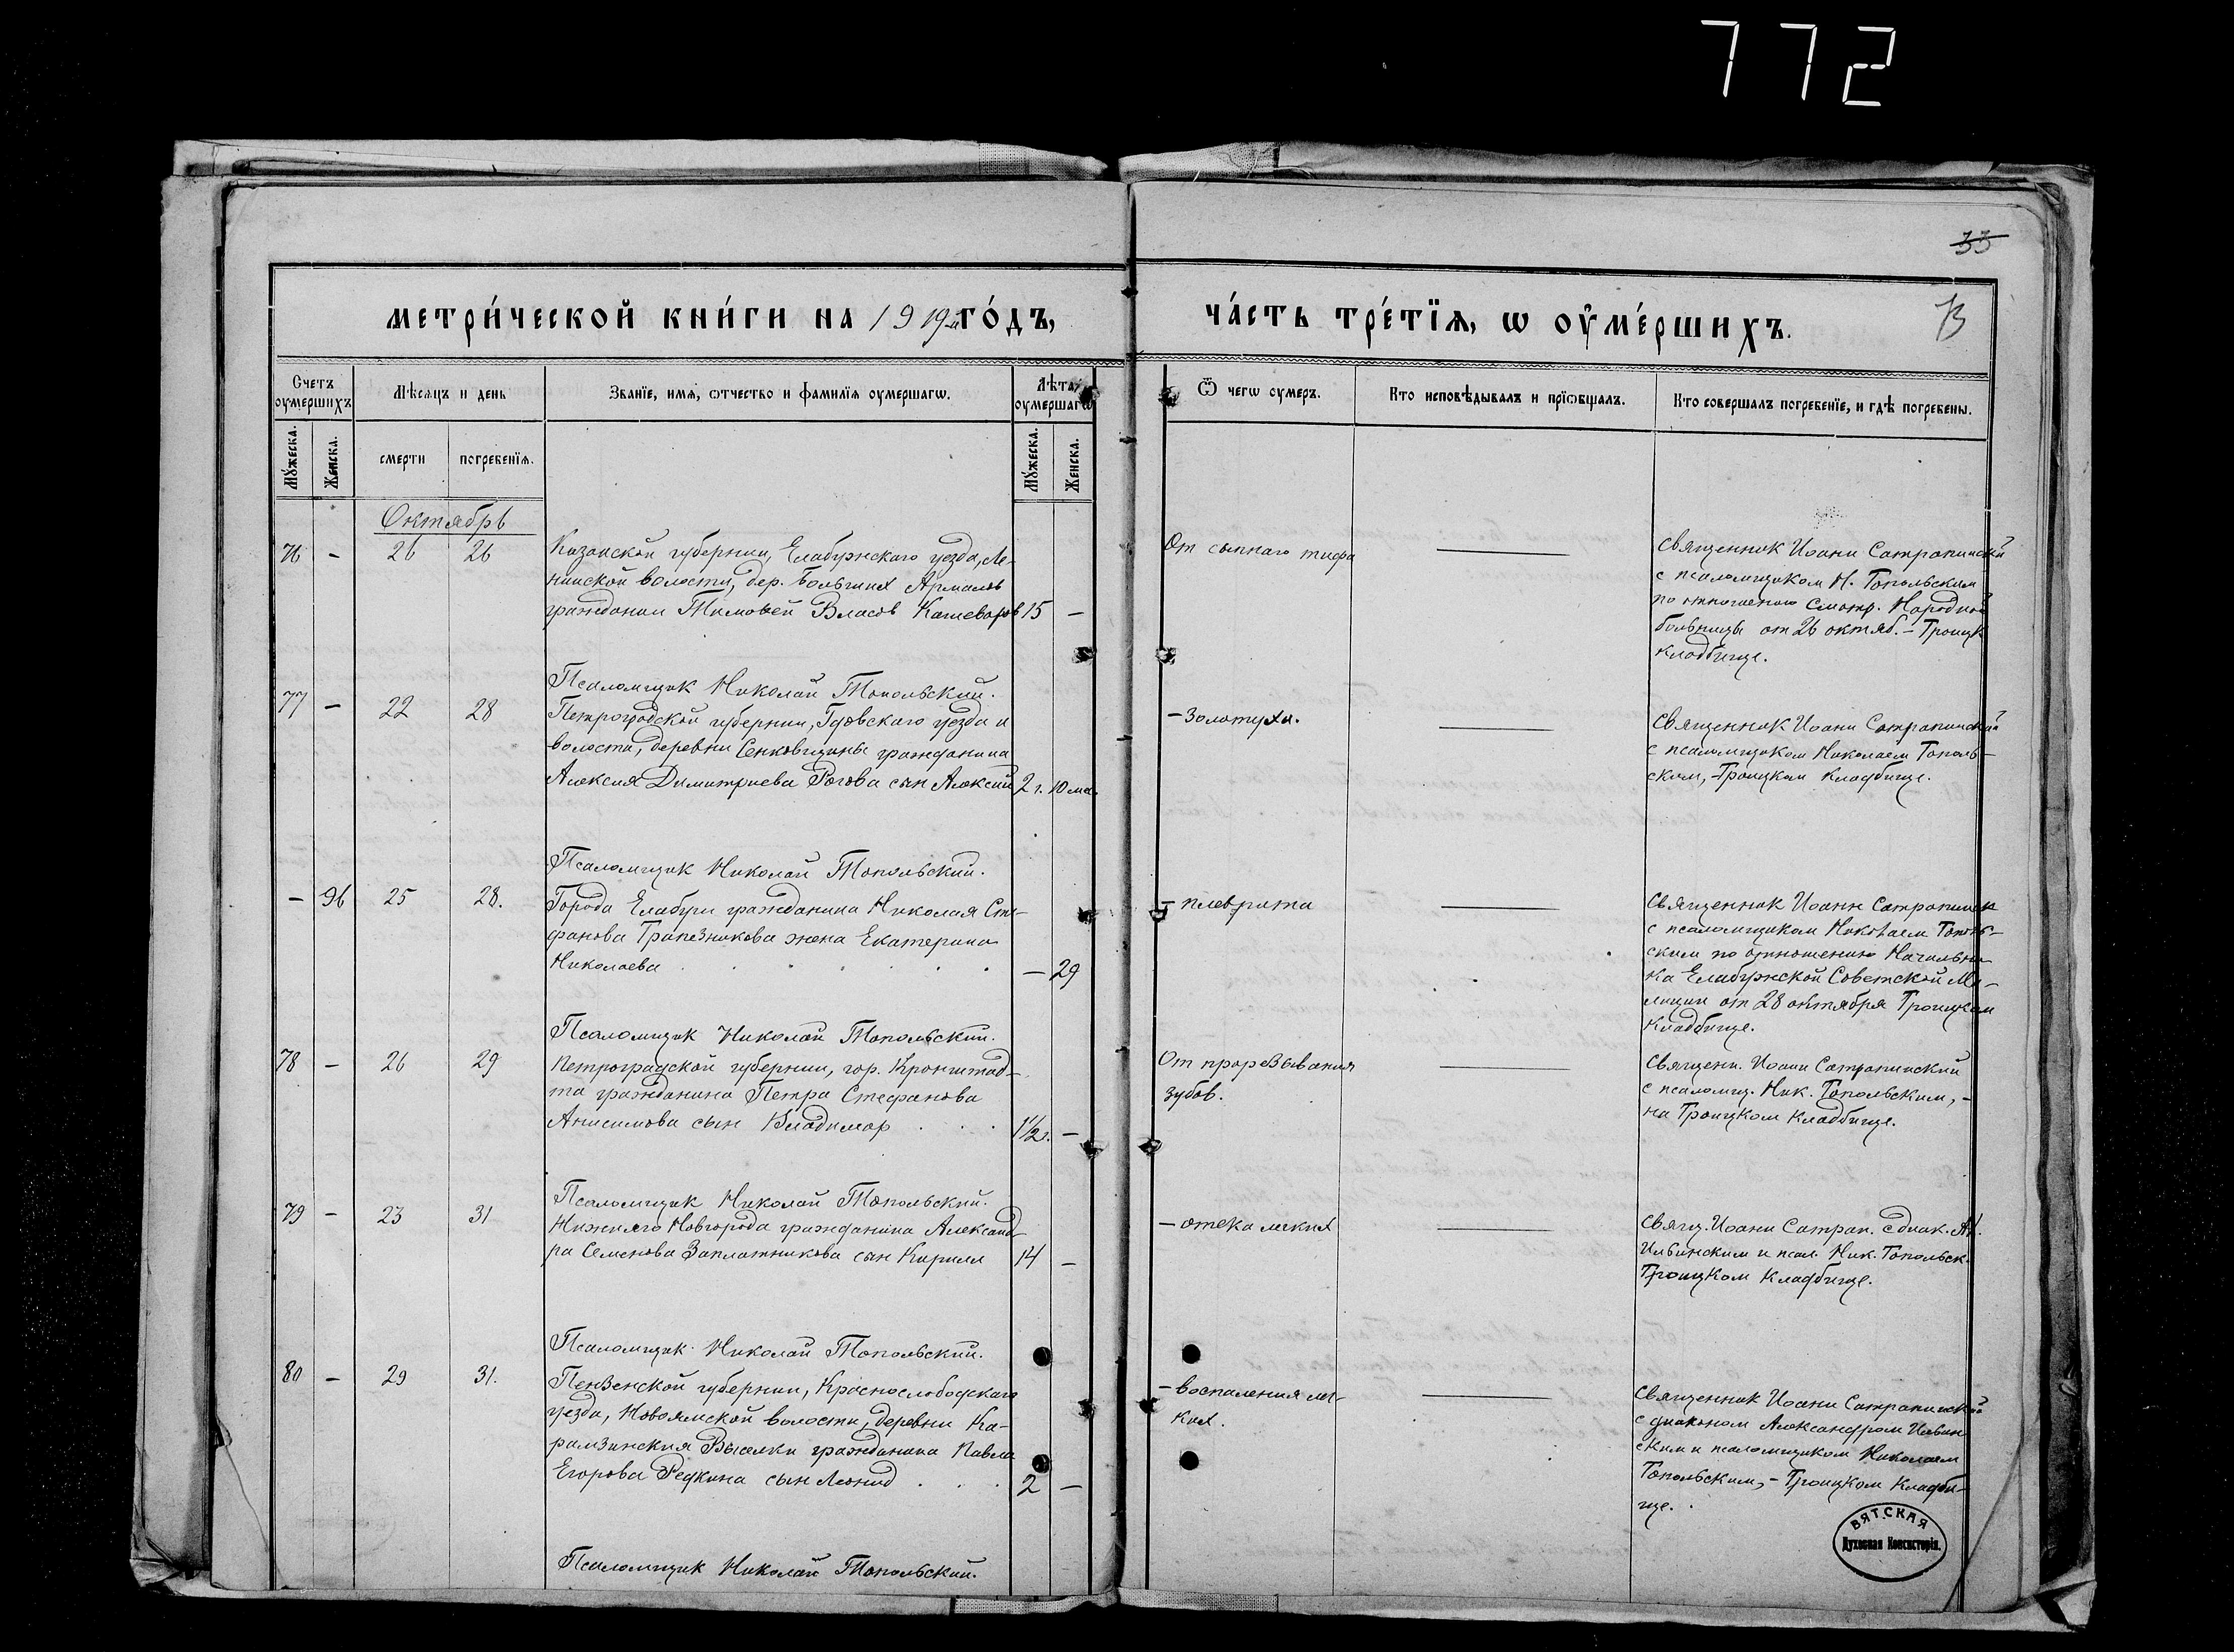 772
33
73
МЕТРИ́ЧЕСКОЙ КНИ́ГИ НА 1919й ГО́ДЪ,
ЧА́СТЬ ТРЕ́ТЇѦ, Ѡ ОУ҆МЕ́РШИХЪ.
Счетъ оумершихъ
Мѣсѧцъ и день
Званїе, имѧ, ѻтчество и фамилїѧ оумершагѡ.
Лѣта оумершагѡ
Ѿ чегѡ оумеръ.
Кто исповѣдывалъ и прїѡбщалъ.
Кто совершалъ погребенїе, и гдѣ погребены.
Мꙋжеска.
Женска.
смерти
погребенїѧ.
Мꙋжеска.
Женска.
Октябрь
76 – 26 26
Казанской губернии, Елабужскаго уезда,
волости, дер. Больших Армалов
гражданин Тимофей Власов Кашеваров 15 –
От сыпнаго тифа
Священник Иоанн Сатрапинский
с псаломщиком Н. Топольским
по отношению Смотр. Народной
больницы от 26 октяб. – Троицк
кладбище.
Псаломщик Николай Топольский.
77 – 22 28
Петроградской губернии, Гдовского уезда и
волости, деревни Сенковщины гражданина
Алексия Димитриева Рогова сын Алексий 2 г. 10 ме.
– Золотухи.
Священник Иоанн Сатрапинский
с псаломщиком Николаем Тополь-
ским, – Троицком кладбище.
Псаломщик Николай Топольский.
– 96 25 28.
Города Елабуги гражданина Николая Сте-
фанова Трапезникова жена Екатерина
Николаева – 29
– плеврита
Священник Иоанн Сатрапинск
с псаломщиком Николаем Тополь-
ским по отношению Начальни-
ка Елабужской Советской Ми-
лиции от 28 октября Троицком
кладбище.
Псаломщик Николай Топольский.
78 – 26 29
Петроградской губернии, гор. Кронштад-
та гражданина Петра Стефанова
Анисимова сын Владимир 1½ г. –
От прорезывания
зубов.
Священ. Иоанн Сатрапинский
с псаломщ. Ник. Топольским, –
на Троицком кладбище.
Псаломщик Николай Топольский.
79 – 23 31
Нижняго Новгорода гражданина Александ-
ра Семенова Заплатникова сын Кирилл 14 –
– отека легких
Свящ. Иоанн Сатрап. с диак. Ал.
Ильинским и псал. Ник. Топольск.
Троицком кладбище.
Псаломщик Николай Топольский.
80 – 29 31.
Пензенской губернии, Краснослободскаго
уезда, Новоямской волости, деревни Ка-
рамзинския Выселки гражданина Павла
Егорова Редкина сын Леонид 2 –
– воспаления лег-
ких.
Священник Иоанн Сатрапинский
с диаконом Александром Ильин
ским и псаломщиком Николаем
Топольским, – Троицком кладби-
ще.
Псаломщик Николай Топольский.
ВЯТСКАЯ
Духовная Консисторія.